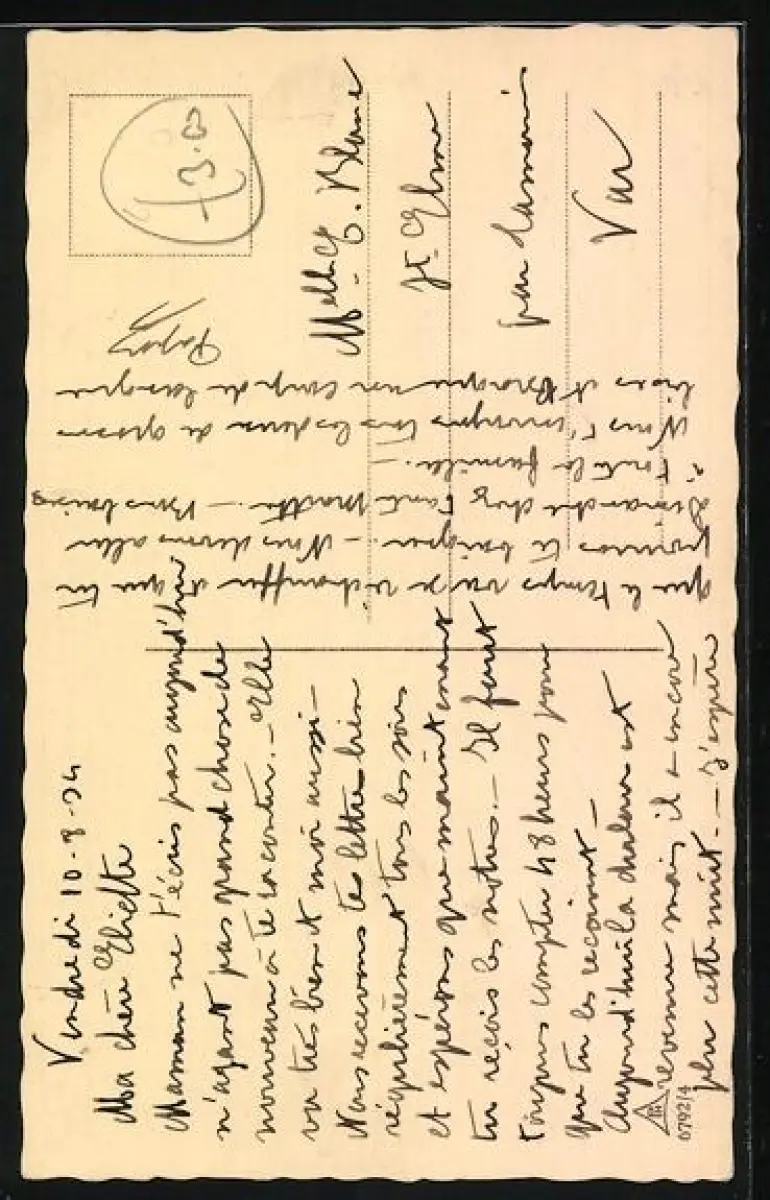 Vendredi 10-8-34
Ma chère Eliette
Maman ne t'écris pas aujourd'hui
n'ayant pas grand chose de
nouveau à te raconter. - Elle
va très bien et moi aussi -
Nous recevons tes lettres bien
régulièrement tous les soirs
et espérons que maintenant
tu reçois les notres. - Il faut
toujours compter 48 heures pour
que tu les recoivent -
Aujourd'hui la chaleur est
revenue mais il a encore
plu cette nuit. - J'espère
que le temps va se réchauffer et que tu
pourras te baigner. - Nous devons aller
Dimanche chez Tante Marthe. - Bons baisers
à toute la famille. -
Nous t'envoyons tous les deux de grosses
bises et Braque un coup de langue
Papa
Melle E. Blanc
St. Elme
par
Var
0792/4